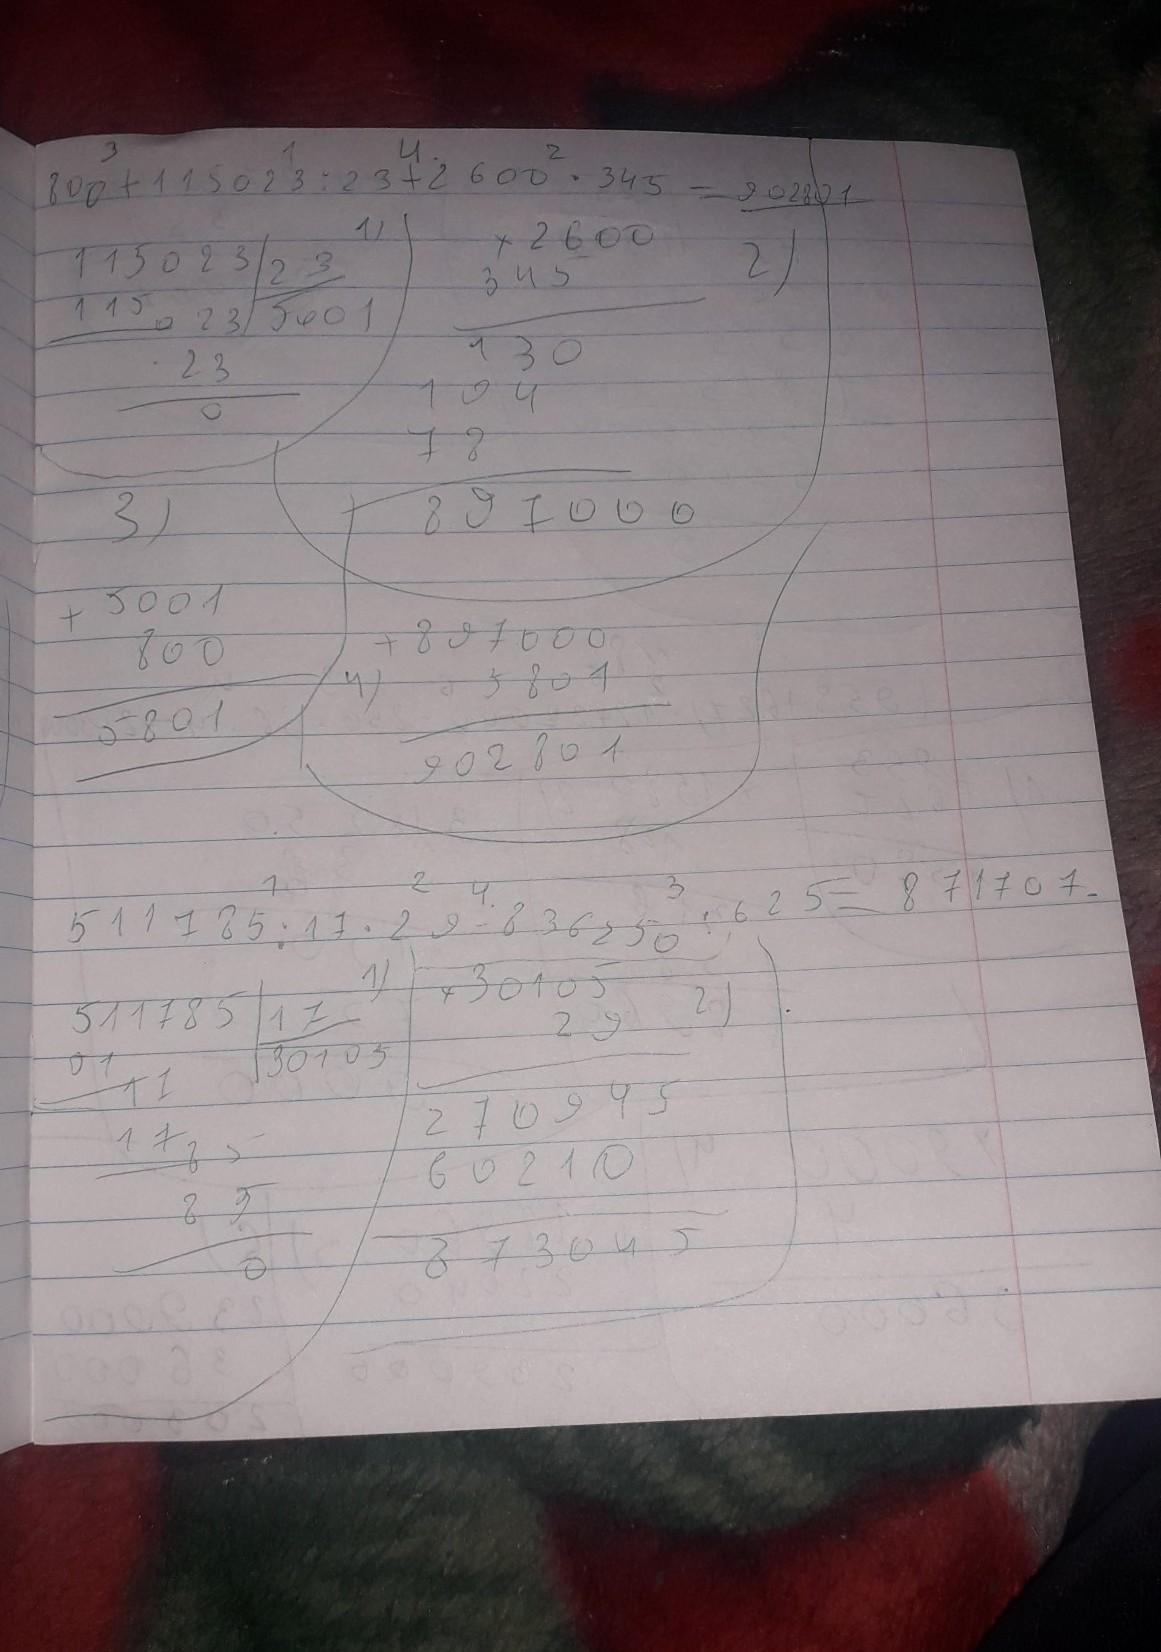 3 1 4. 2
800+115023:23+2 600·345=902801
1)
115023 23
115 023 5001
23
0
× 2600
345
2)
130
104
78
897000
3)
+ 5001
800
5801
+897000
4) 5801
902801
1 2 4. 3
511785:17·29-836250:625=871707.
1)
511785 17
01 30105
11
17 85
85
0
×30105
29
2)
270945
60210
873045